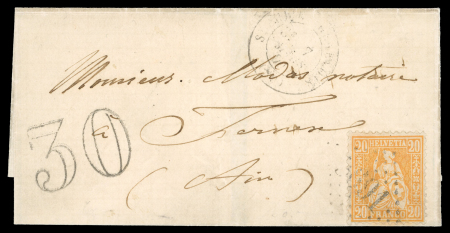 Monsieur Modas notaire
a Fernex
(Ain)
30
HELVETIA
20 20
20 FRANCO 20